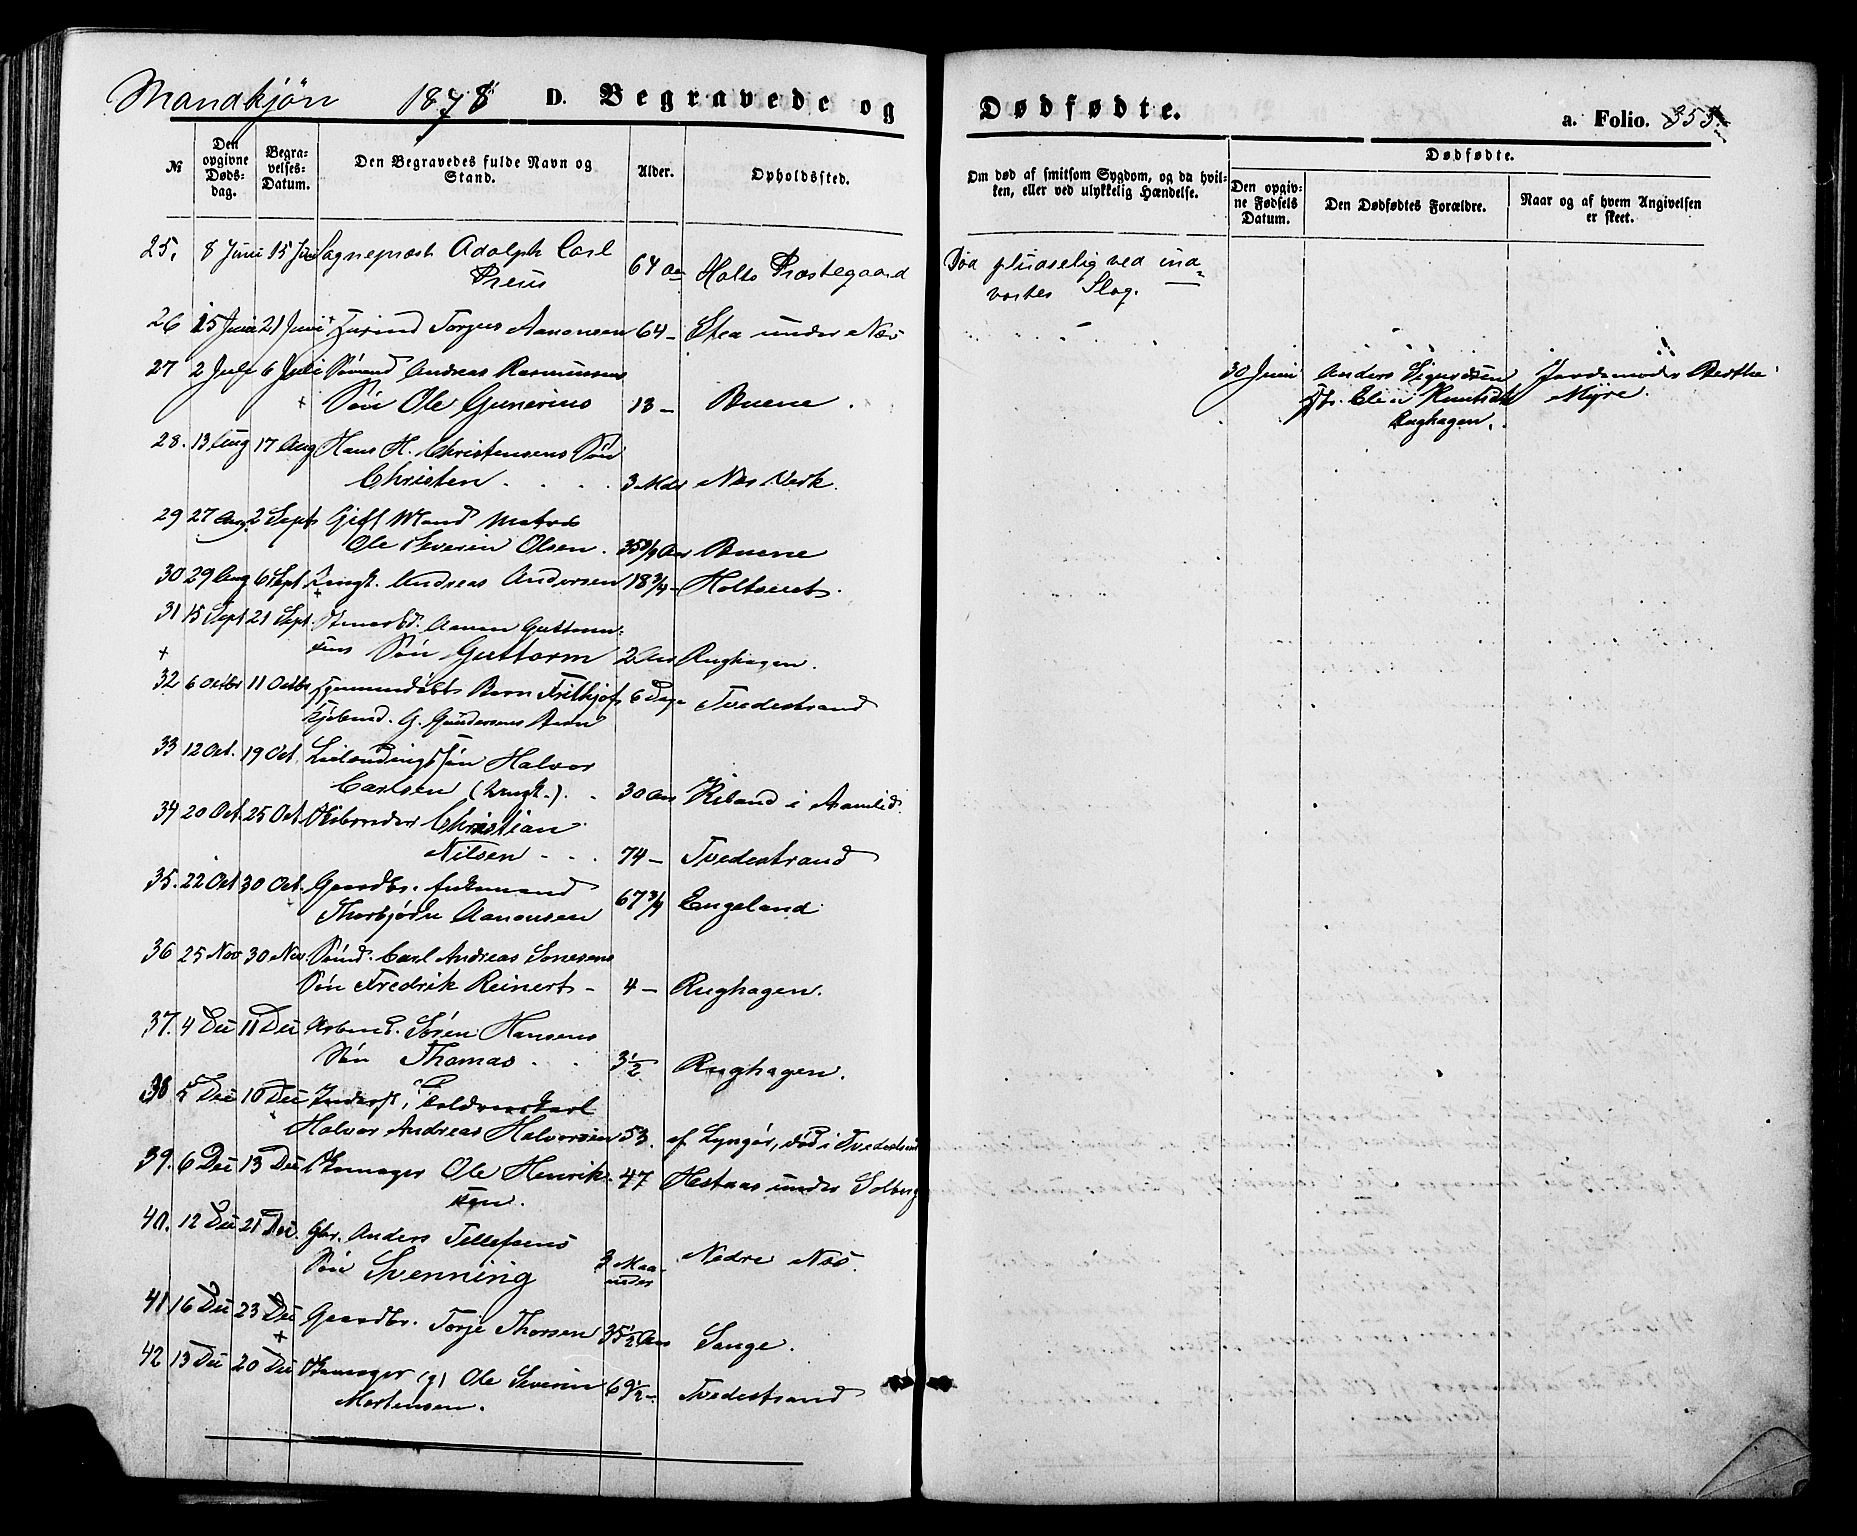 Mandkjøn 1878 D. Begravede og Dødfødte. a. Folio. 353.
№
Den opgivne Dødsdag.
Begravelses-Datum.
Den Begravedes fulde Navn og Stand.
Alder.
Opholdssted.
Om død af smitsom Sygdom, og da hvilken, eller ved ulykkelig Hændelse.
Dødfødte.
Den opgivne Fødsels Datum.
Den Dødfødtes Forældre.
Naar og af hvem Angivelsen er skeet.
25. 8 Juni 15 Juni Sognepræst Adolph Carl
Preus 64 Aar Holts Præstegaard
Død pludselig ved ind-
vortes Slag.
26 15 Juni 21 Juni Torjus Aanonsen 64 - under Næs
27 2 Juli 6 Juli Sømand Andreas Rasmussens
Søn Ole Gunerius 13 - Buene.
30 Juni Anders Sigurdsen
Elen Knutsdt
Rughagen.
Jordemoder Berthe
Myre.
28. 13 Aug 17 Aug Hans H. Christensens Søn
Christen 3 Mdr Næs Verk.
29 27 Aug. 2 Septb Gift Mand Matros
Ole Severin Olsen. 35 3/4 Aar Buene
30 29 Aug 6 Sept Ungk. Andreas Andersen 18 3/4 - Holtseiet.
31 15 Sept 21 Sept. Aanon Guttorm-
sens Søn Guttorm 2 Aar Rughagen.
32 6 Octbr 11 Octbr Hjemmedøbt Barn Frithjof
Kjøbmd. G. Gundersens Barn 6 Dage Tvedestrand
33 12 Oct. 19 Oct. Halvor
Carlsen (Ungk.). 30 Aar i Aamlid.
34 20 Oct. 25 Oct. Christian
Nilsen 74 - Tvedestrand
35. 22 Oct 30 Oct. Gaardbr. Enkemand
Thorbjørn Aanonsen 67 3/4 Engeland
36 25 Nov 30 Nov Sømd. Carl Andreas
Søn Fredrik Reinert - 4 - Rughagen.
37. 4 Dec 11 Dec Arbmd. Søren Hansens
Søn Thomas 3 1/2 Rughagen.
38 5 Dec 10 Dec Inderst,
Halvor Andreas Halvorsen 53. af Lyngør, død i Tvedestrand
39. 6 Dec 13 Dec Skomager Ole Henrik-
sen. 47 Hestaas under Solberg
40. 12 Dec 21 Dec. Gbr. Anders Tellefsens
Søn Svenning 3 Maa-
neder Nedre Næs.
41 16 Dec 23 Dec Gaardbr. Torje Thorsen 35 1/2 Aar Sange.
42 13 Dec 20 Dec Skomager (g) Ole Severin
Mortensen. 69 1/2 - Tvedestrand